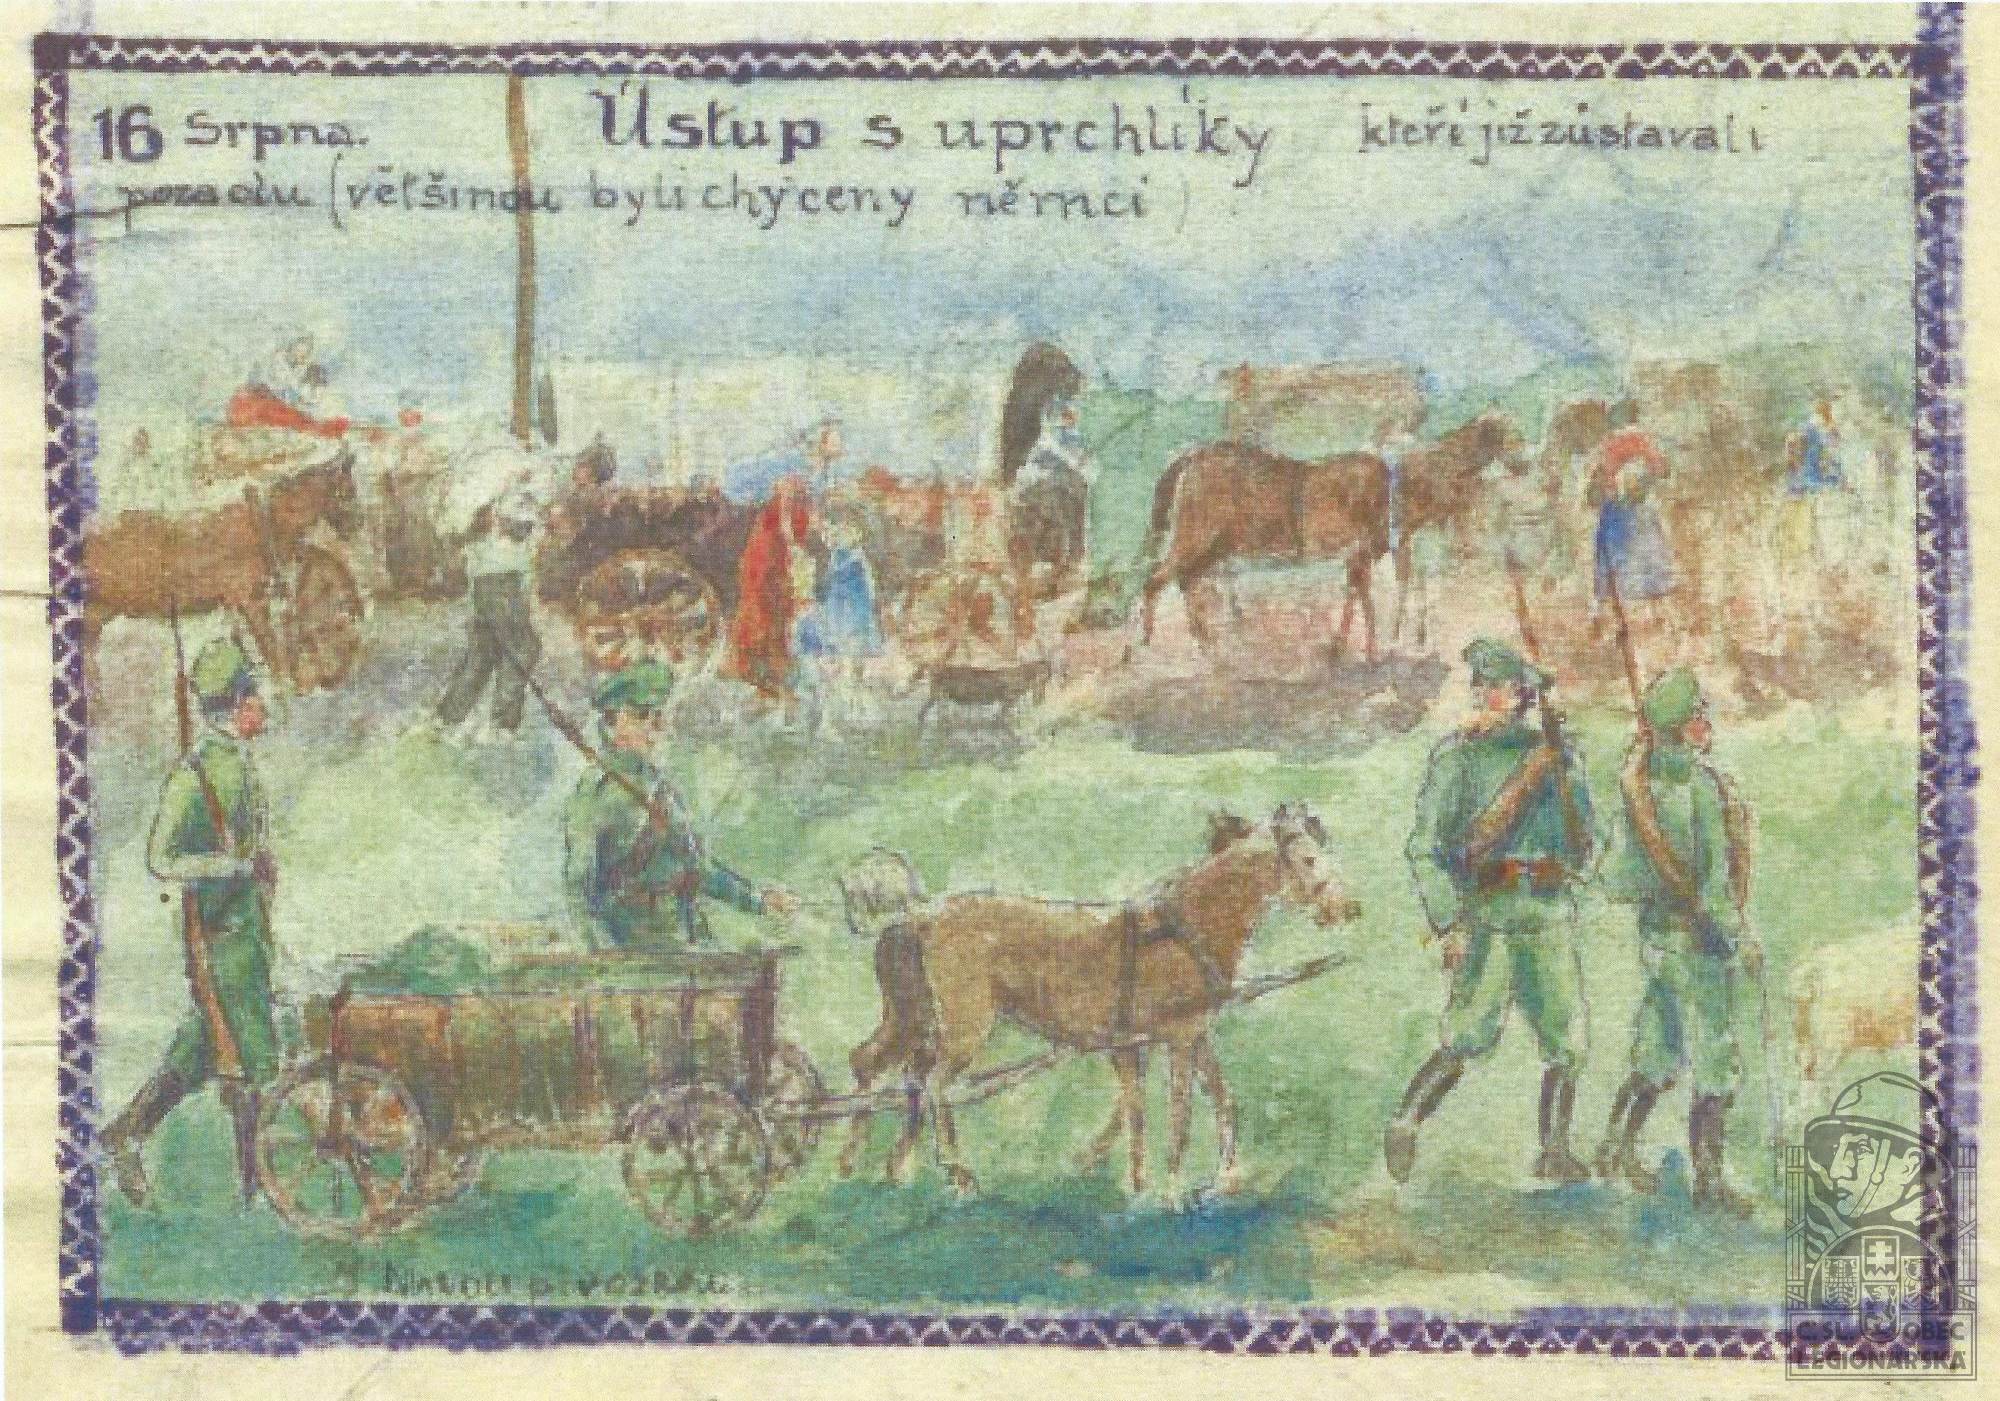 16 Srpna. Ústup s uprchlíky kteří již zůstavali
pozadu (většinou byli chyceny němci)
Č.SL. OBEC
LEGIONÁŘSKÁ